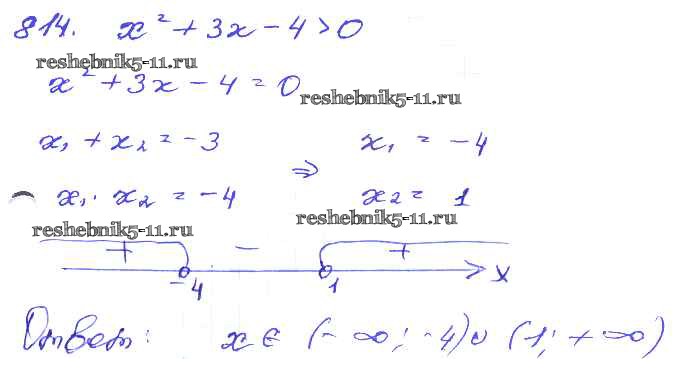 814. x² + 3x - 4 > 0
reshebnik5-11.ru
x² + 3x - 4 = 0
reshebnik5-11.ru
x₁ + x₂ = -3 x₁ = -4
⇒
x₁ · x₂ = -4 x₂ = 1
reshebnik5-11.ru reshebnik5-11.ru
+ - +
-4 1 x
Ответ: x ∈ (-∞; -4) ∪ (1; +∞)